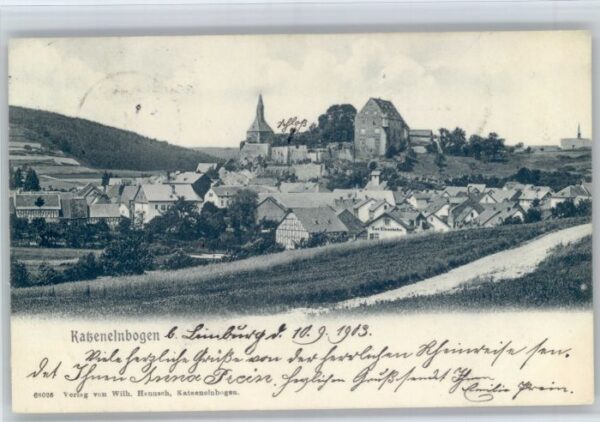 Schloß
Zur Eisenbahn.
Katzenelnbogen b. Limburg d 10.9.1903
Viele herzliche Grüße von der herrlichen Rheinreise sen-
det Ihnen Anna Frein. Herzlichen Gruß sendet Ihr
Emilie Frein.
68026 Verlag von Wilh. Hennsch, Katzenelnbogen.